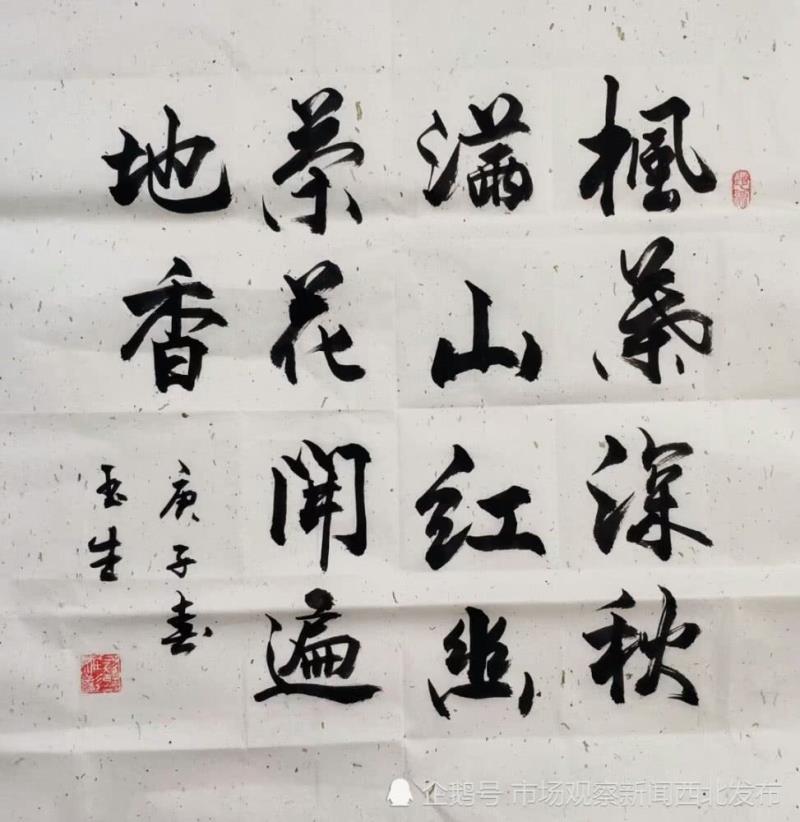 楓葉深秋
滿山紅幽
茶花開遍
地香
庚子春
玉生
企鹅号 市场观察新闻西北发布